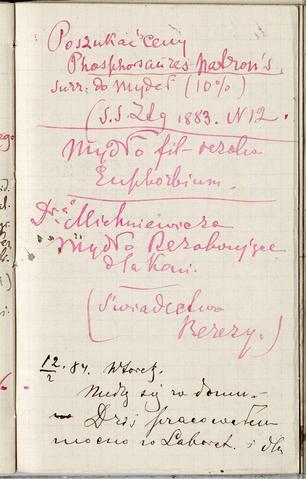 Poszukać ceny
Phosphorsaures Natron's
surr: do mydeł (10%)
(S.S. Ztg 1883. N 12.
Mydło
Euphorbium.
Dra Michniewicza
Mydło Rezolwujące
dla Koni.
(Świadectwo
Berezy.)
12/2. 84. Wtorek.
Nudzę się w domu.
Dziś pracowałem
mocno w Laborat. i dla